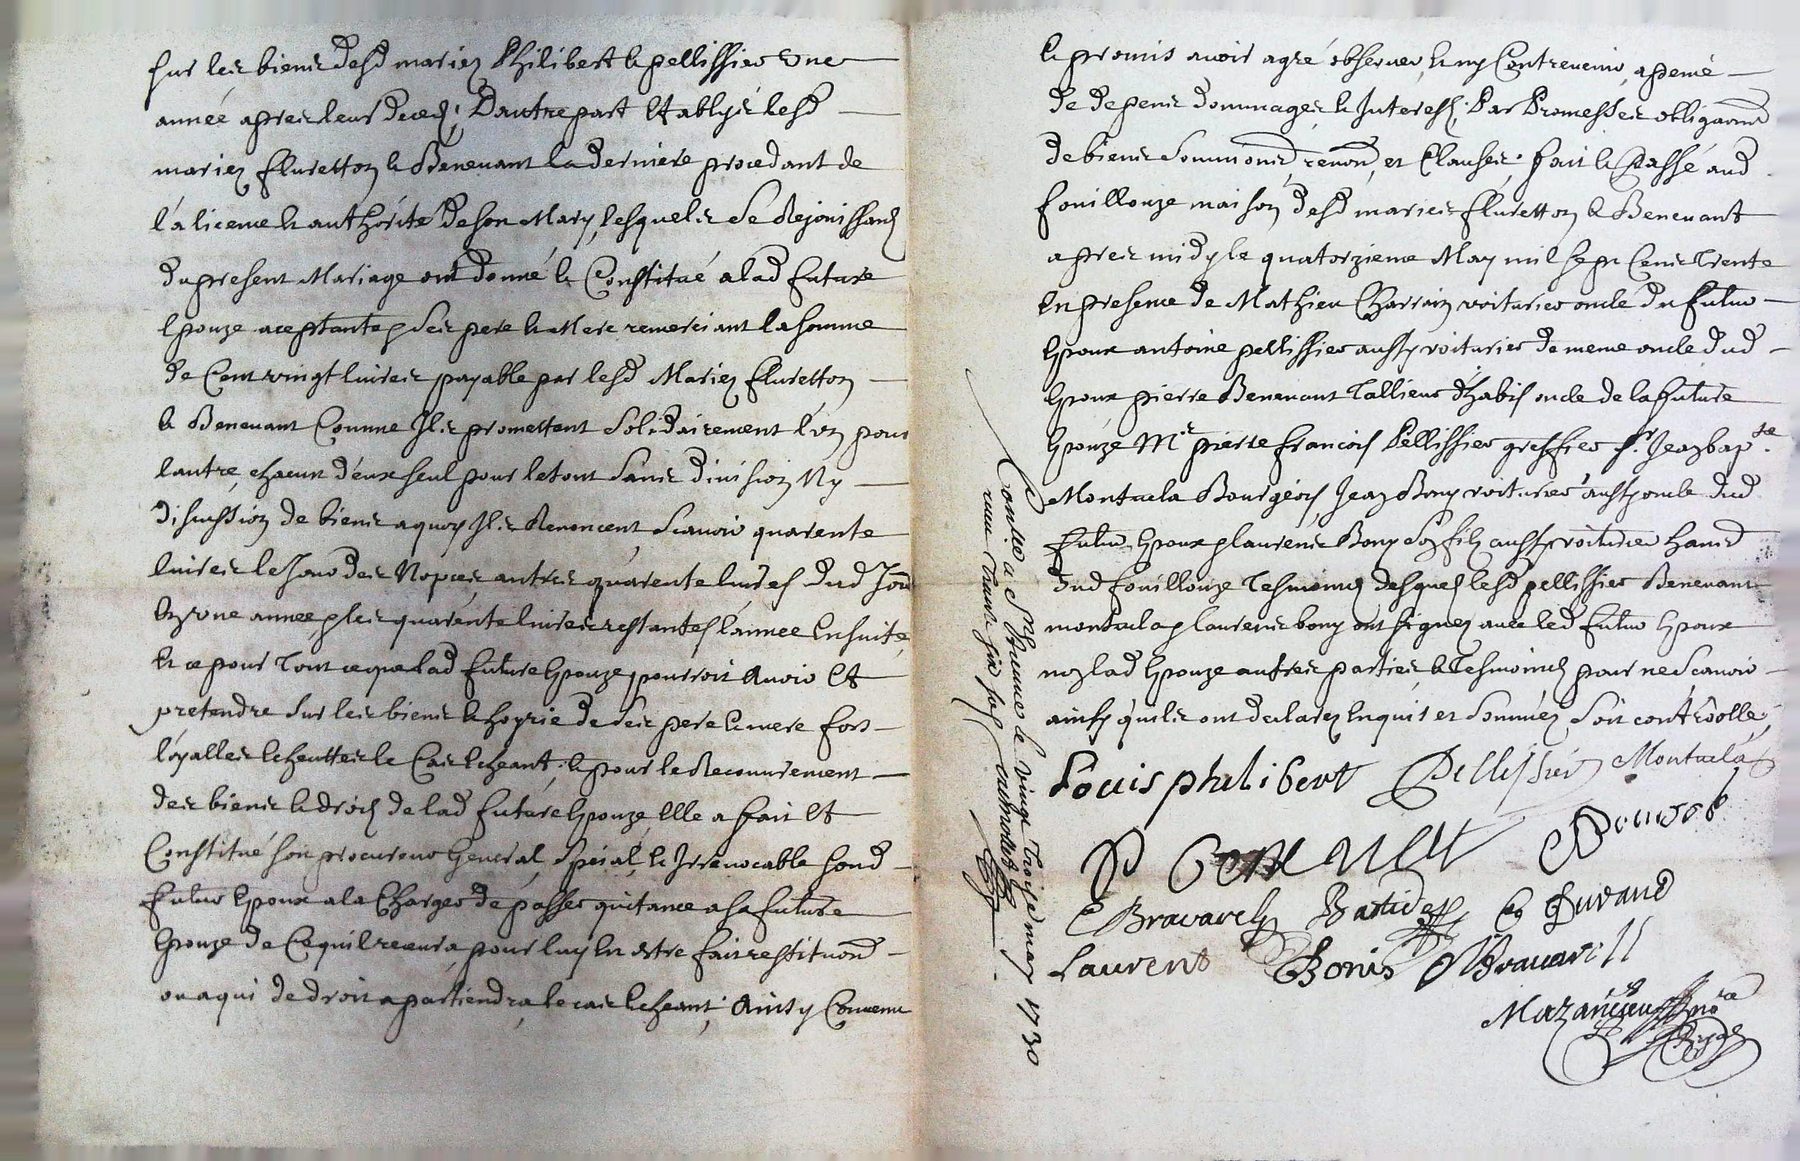 sur les biens desd mariez Philibert & pellissier une
année apres leurs deces; Dautre part Etablys lesd
mariez fluretton & Benevant la derniere procedant de
l'a licence & authôrité de son Mary, lesquels se Rejouissants
du present Mariage ont donné & Constitué a lad future
Epouze aceptante & ses pere & Mere remerciant la somme
de Cent vingt livres payable par lesd Mariez fluretton
& Benevant Comme Ils promettent Solidairement l'un pour
lautre, chacun d'eux seul pour le tout Sans division Ny
discussion de biens a quoy Ils Renoncent Scavoir quarente
livres le Jour des Nopces, autres quarente livres dud Jour
En une année, & les quarente livres restantes l'année Ensuite,
Et ce pour Tout ce que lad future Epouze pourroit Avoir Et
pretendre sur les biens & hoyrie de ses pere & mere fors
loyalles Echeuttes le Cas Echeant; & pour le Recouvrement
des biens & droits de lad future Epouze, Elle a fait Et
Constitué son procureur General, Special, & Irrevocable sond
futur Epoux a la Charge de passer quitance a sa future
Epouze de Ce quil recevra, pour luy En Estre fait restitution
ou a qui de droit apartiendra, le cas Echeant; Ainsy Convenu
& promis avoir agré observer, & ny Contrevenir, a peine
de depens dommages & Interests; Par Promesses obligations
de biens Soumions, renon, et Clauses; fait & Passé aud
fouillouze maison desd mariés fluretton & Benevant
apres midy le quatorzieme May mil sept Cens Trente
En presence de Mathieu Charrin voiturier oncle du futur
Epoux antoine pellissier aussy voiturier de meme oncle dud
Epoux pierre Benevant Tallieur d'habis oncle de la future
Epouze Mre pierre francois Pellissier greffier sr. Jean bapte.
Montuela Bourgeois, Jean Bony voiturier aussy oncle dud
futur Epoux & laurens Bony Son fils aussy voiturier hants
dud fouillouze Tesmoins desquels lesd pellissier Benevant
montuela & laurens bony ont signez avec led futur Epoux
non lad Epouze autres parties & Tesmoins pour ne Scavoir
ainsy quils ont declarez Enquis et Sommez Soit contrôollé,
Louis philibert Pellissier Montuela
P benevent
Bravard Bastide Durand
Laurent Bonis Bravard
Mazancieux
Conlle a St Etienne le vingt Trois e may 1730